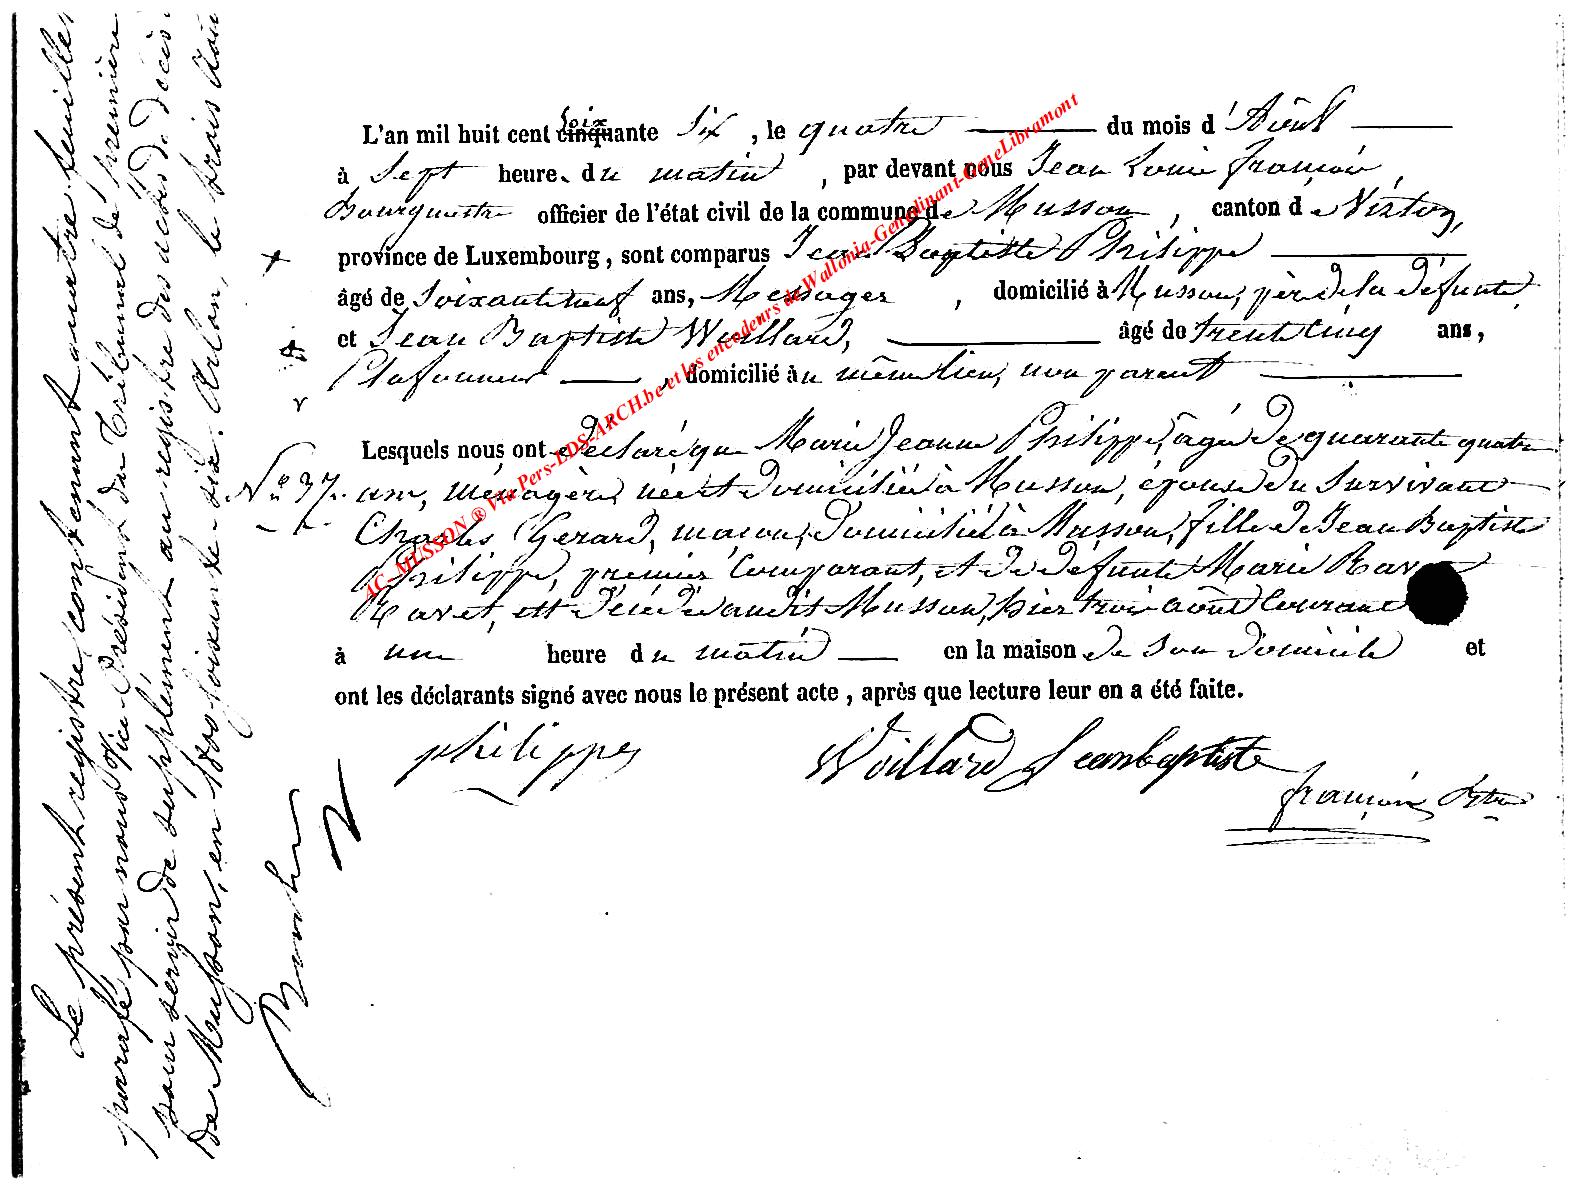 Le présent registre, contenant quatre feuilles
paraffé par nous Vice-Président du Tribunal de première
pour servir de supplément au registre des actes de décès
de Musson, en 1800 soixante-six. Arlon, le trois Aou
L'an mil huit cent soixante six, le quatre du mois d'Août
à Sept heures du matin, par devant nous Jean Louis François,
Bourgmestre officier de l'état civil de la commune de Musson, canton de Virton,
province de Luxembourg, sont comparus Jean Baptiste Philippe
âgé de Soixante neuf ans, Messager, domicilié à Musson, père de la défunte
et Jean Baptiste Woillard, âgé de trente cinq ans,
Plafonneur, domicilié au même lieu, non parent
Lesquels nous ont déclaré que Marie Jeanne Philippe, âgée de quarante quatre
N° 37. ans, ménagère, née et domiciliée à Musson, épouse du Survivant
Charles Gérard, maçon, domicilié à Musson, fille de Jean Baptiste
Philippe, premier Comparant, et de défunte Marie Rav
Ravet, est décédée audit Musson, hier trois août Courant
à une heure du matin en la maison de son domicile et
ont les déclarants signé avec nous le présent acte, après que lecture leur en a été faite.
philippe
Woillard Jean baptiste
françois Bgtre
AC-MUSSON ® Via Pers-LDS-ARCH.be et les encodeurs de Wallonia-Genedinant-GeneLibramont